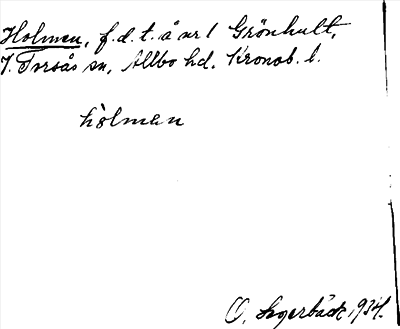 Holmen, f.d.t. å nr 1 Grönhult,
V. Torsås sn, Allbo hd. Kronob. l.
hòlman
O. Sagerbäck, 1934.